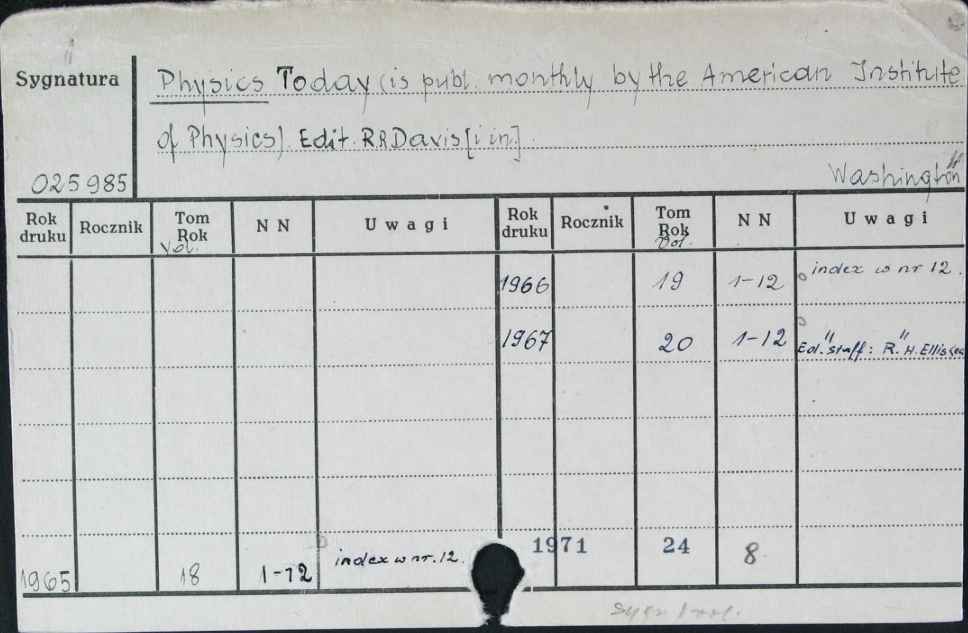 Sygnatura
Physics Today (is publ. monthly by the American Institute
of Physics). Edit. R R Davis [i in.].
025985 Washington
Rok druku Rocznik Tom Rok Vol. N N Uwagi Rok druku Rocznik Tom Rok Vol. N N Uwagi
1966 19 1-12 index w nr 12.
1967 20 1-12 " "
Ed. staff: R. H. Ellis
1971 24 8
1965 18 1-12 index w nr. 12.